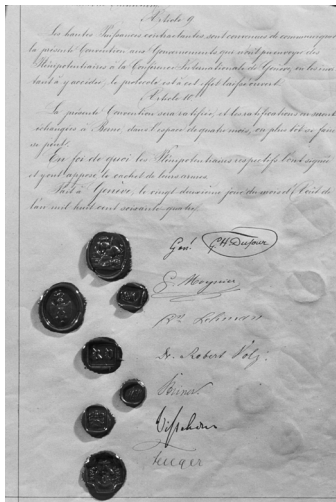 Article 9
Les hautes Puissances contractantes sont convenues de communiquer
la présente Convention aux Gouvernements qui n'ont pu envoyer des
Plénipotentiaires à la Conférence Internationale de Genève, en les invi-
tant à y accéder, le protocole est à cet effet laissé ouvert.
Article 10
La présente Convention sera ratifiée, et les ratifications en seront
échangées à Berne, dans l'espace de quatre mois, ou plus tôt si faire
se peut.
En foi de quoi les Plénipotentiaires respectifs l'ont signée
et y ont apposé le cachet de leurs armes.
Fait à Genève, le vingt deuxième jour du mois d'Août de
l'an mil huit cent soixante quatre.
Gen. GH Dufour
G. Moynier
Dr Lehmann
Dr. Robert Volz.
Steiner
Visschers
Fenger